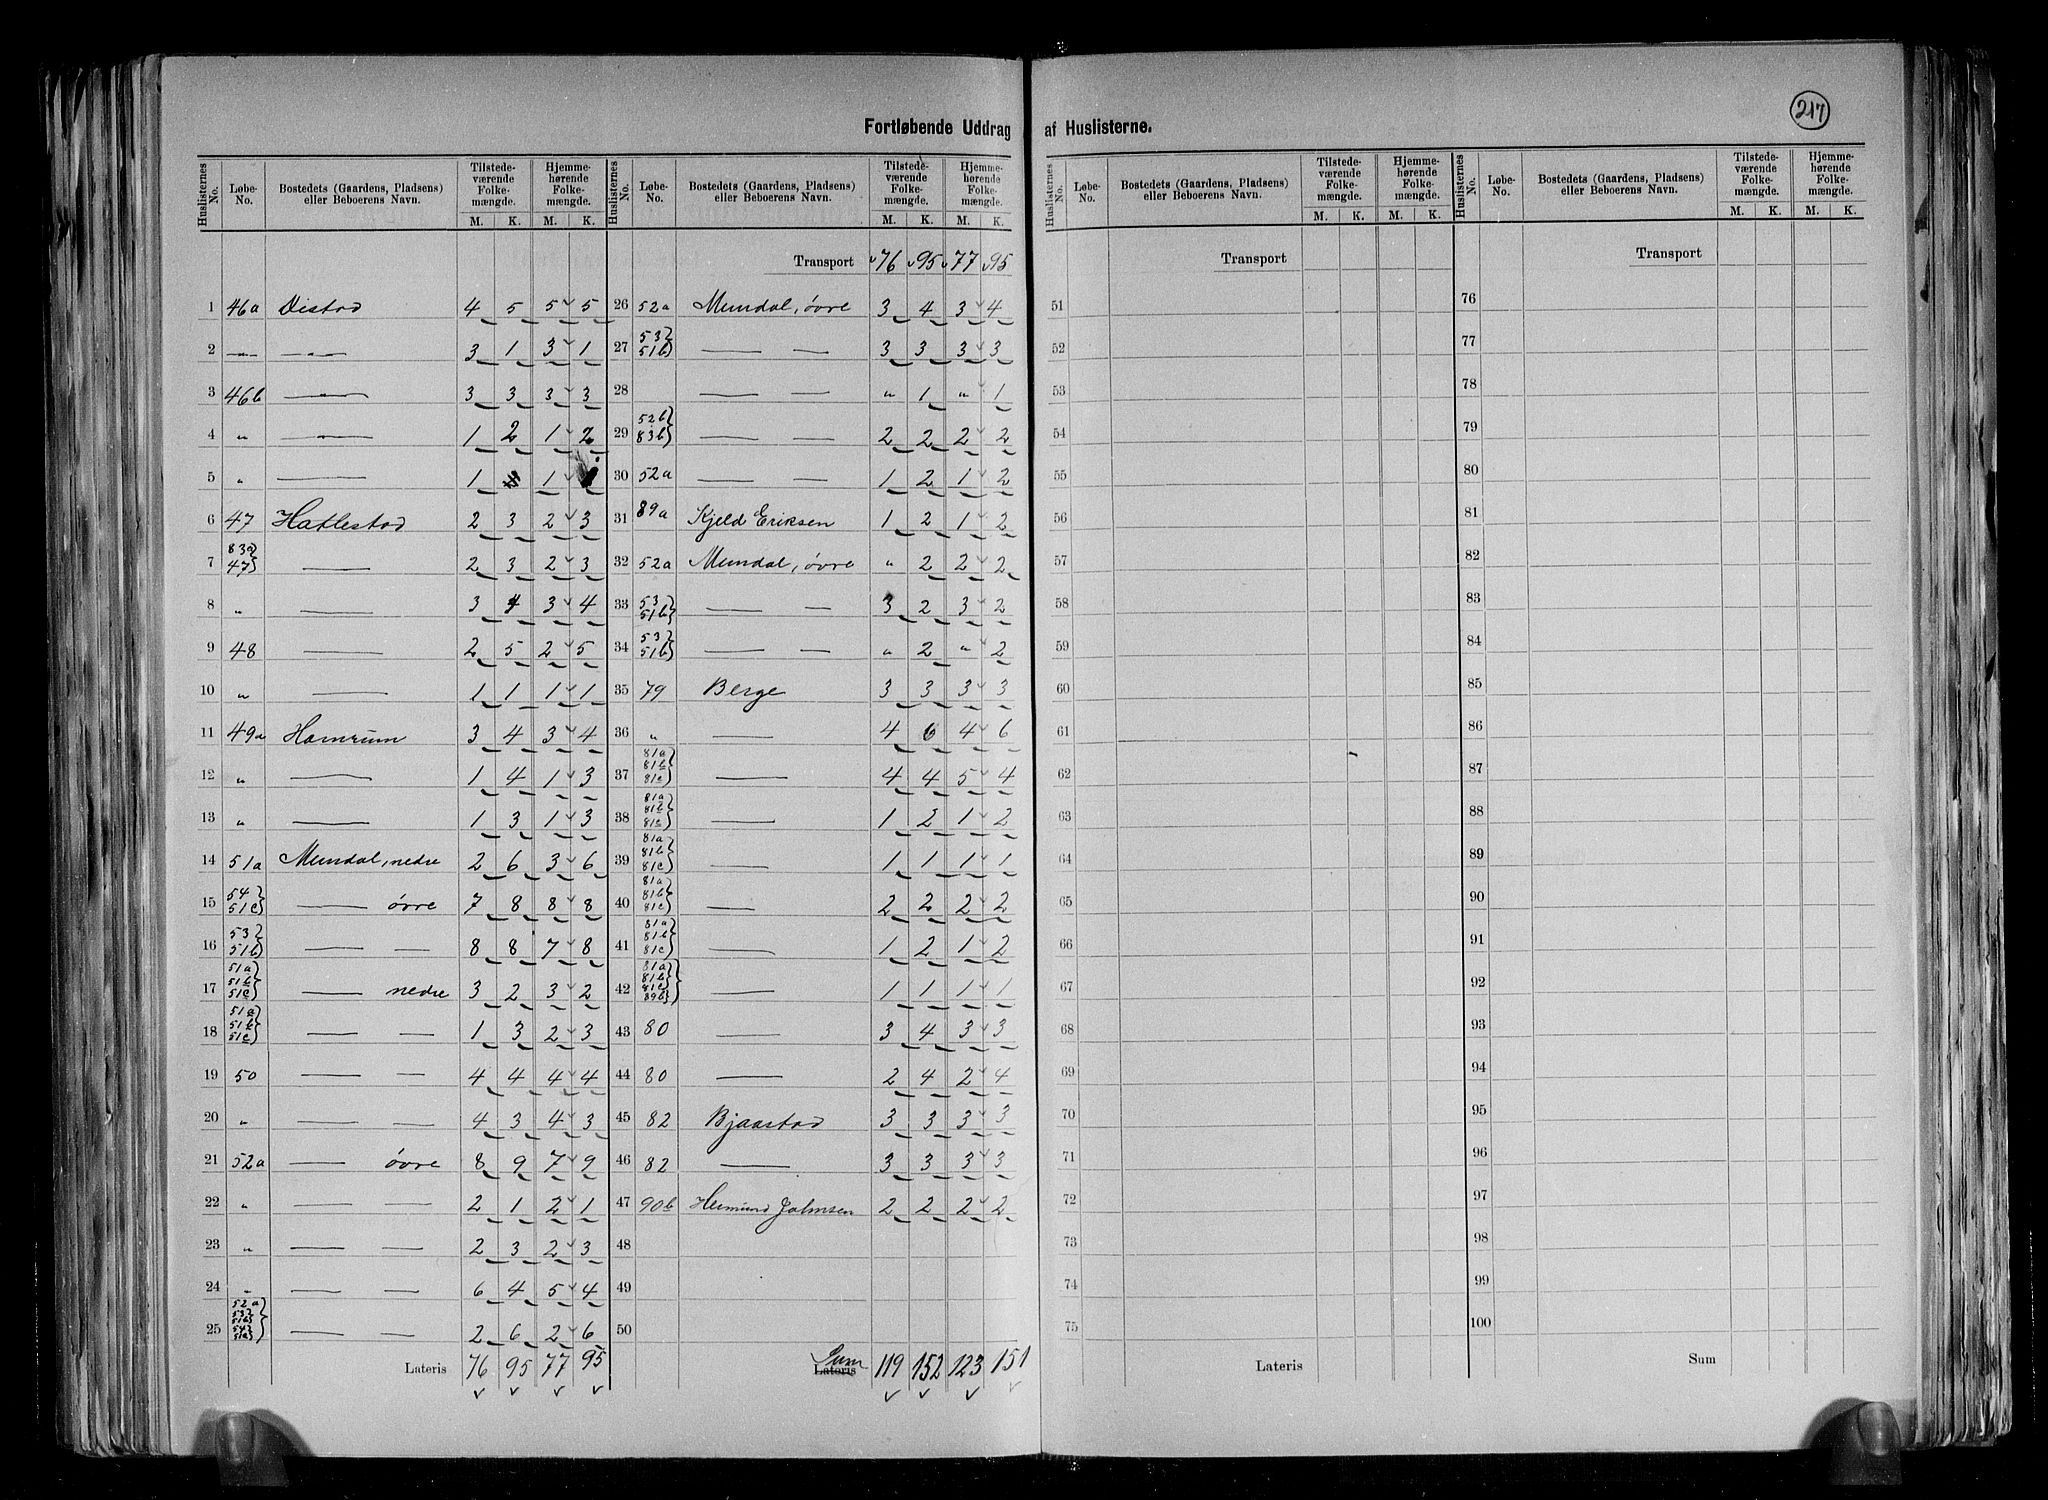 217
Fortløbende Uddrag af Huslisterne.
Huslisternes No. Løbe-No. Bostedets (Gaardens, Pladsens) eller Beboerens Navn. Tilstedeværende Folkemængde. M. K. Hjemmehørende Folkemængde. M. K. Huslisternes No. Løbe-No. Bostedets (Gaardens, Pladsens) eller Beboerens Navn. Tilstedeværende Folkemængde. M. K. Hjemmehørende Folkemængde. M. K.
Transport 76 95 77 95
1 46a Distad 4 5 5 5
2 — — 3 1 3 1
3 46b — 3 3 3 3
4 " — 1 2 1 2
5 " — 1 1
6 47 Hatlestad 2 3 2 3
7 83a 47} — 2 3 2 3
8 " — 3 4 3 4
9 48 — 2 5 2 5
10 " — 1 1 1 1
11 49a Hamrum 3 4 3 4
12 " — 1 4 1 3
13 " — 1 3 1 3
14 51a Mundal, nedre 2 6 3 6
15 54 51c} — øvre 7 8 8 8
16 53 51b} — — 8 8 7 8
17 51a 51b 51c} — nedre 3 2 3 2
18 51a 51b 51c} — — 1 3 2 3
19 50 — — 4 4 4 4
20 " — — 4 3 4 3
21 52a — øvre 8 9 7 9
22 " — — 2 1 2 1
23 " — — 2 3 2 3
24 " — — 6 4 5 4
25 52a 53 51b 54 51c} — — 2 6 2 6
Lateris 76 95 77 95
26 52a Mundal, øvre 3 4 3 4
27 53 51b} — — 3 3 3 3
28 — — " 1 " 1
29 52b 83b} — — 2 2 2 2
30 52a — — 1 2 1 2
31 89a Kjeld Eriksen 1 2 1 2
32 52a Mundal, øvre " 2 2 2
33 53 51b} — — 3 2 3 2
34 53 51b} — — " 2 " 2
35 79 Berge 3 3 3 3
36 " — 4 6 4 6
37 81a 81b 81c} — 4 4 5 4
38 81a 81b 81c} — 1 2 1 2
39 81a 81b 81c} — 1 1 1 1
40 81a 81b 81c} — 2 2 2 2
41 81a 81b 81c} — 1 2 1 2
42 81a 81b 81c 89b} — 1 1 1 1
43 80 — 3 4 3 3
44 80 — 2 4 2 4
45 82 Bjaastad 3 3 3 3
46 82 — 3 3 3 3
47 90b 2 2 2 2
48
49
50
Sum Lateris 119 152 123 151
Huslisternes No. Løbe-No. Bostedets (Gaardens, Pladsens) eller Beboerens Navn. Tilstedeværende Folkemængde. M. K. Hjemmehørende Folkemængde. M. K. Huslisternes No. Løbe-No. Bostedets (Gaardens, Pladsens) eller Beboerens Navn. Tilstedeværende Folkemængde. M. K. Hjemmehørende Folkemængde. M. K.
Transport
51
52
53
54
55
56
57
58
59
60
61
62
63
64
65
66
67
68
69
70
71
72
73
74
75
Lateris
Transport
76
77
78
79
80
81
82
83
84
85
86
87
88
89
90
91
92
93
94
95
96
97
98
99
100
Sum